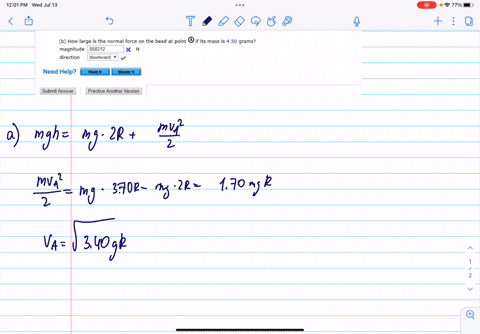 12:01 PM Wed Jul 13
77%
(b) How large is the normal force on the bead at point A if its mass is 4.50 grams?
magnitude .058212 N
direction downward
Need Help? Read It Watch It
Submit Answer Practice Another Version
a) mgh = mg · 2R + mv_A²/2
mv_A²/2 = mg · 3.70R - mg · 2R = 1.70 mgR
v_A = √3.40gR
1
2